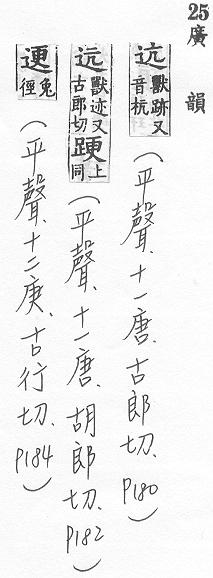 25廣韻
迒 獸跡又音杭(平聲、十一唐、古郎切、P180)
迒 獸迹又古郎切 𨁈 上同(平聲、十一唐、胡郎切、P182)
䢚 兔徑(平聲、十二庚、古行切、P184)